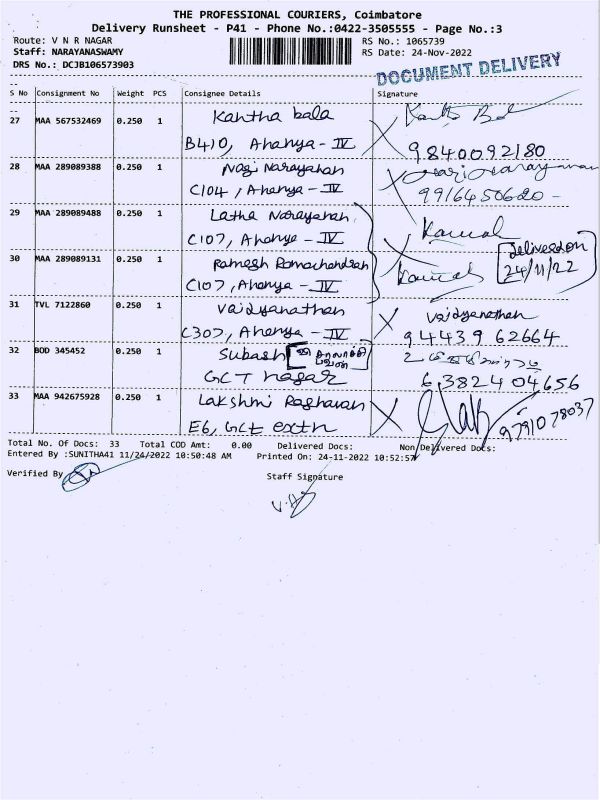 THE PROFESSIONAL COURIERS, Coimbatore
Delivery Runsheet - P41 - Phone No.:0422-3505555 - Page No.:3
Route: V N R NAGAR
RS No.: 1065739
Staff: NARAYANASWAMY
RS Date: 24-Nov-2022
DRS No.: DCJB106573903
DOCUMENT DELIVERY
S No Consignment No Weight PCS Consignee Details Signature
27 MAA 567532469 0.250 1 Kantha bala
B410, Ananya - IV 9840092180
28 MAA 289089388 0.250 1 Nagi Narayanan
C104, Ananya - IV 9916450620
29 MAA 289089488 0.250 1 Latha Narayanan Kamal
C107, Ananya - IV delivered on
30 MAA 289089131 0.250 1 Ramesh Ramachandran 24/11/22
C107, Ananya - IV Kamal
31 TVL 7122860 0.250 1 Vaidyanathan Vaidyanathan
C307, Ananya - IV 94439 62664
32 BOD 345452 0.250 1 Subash
GCT nagar 6382404656
33 MAA 942675928 0.250 1 Lakshmi Raghavan
E6, GCT extn 9791078037
Total No. Of Docs: 33 Total COD Amt: 0.00 Delivered Docs: Non Delivered Docs:
Entered By :SUNITHA41 11/24/2022 10:50:48 AM Printed On: 24-11-2022 10:52:57
Verified By
Staff Signature